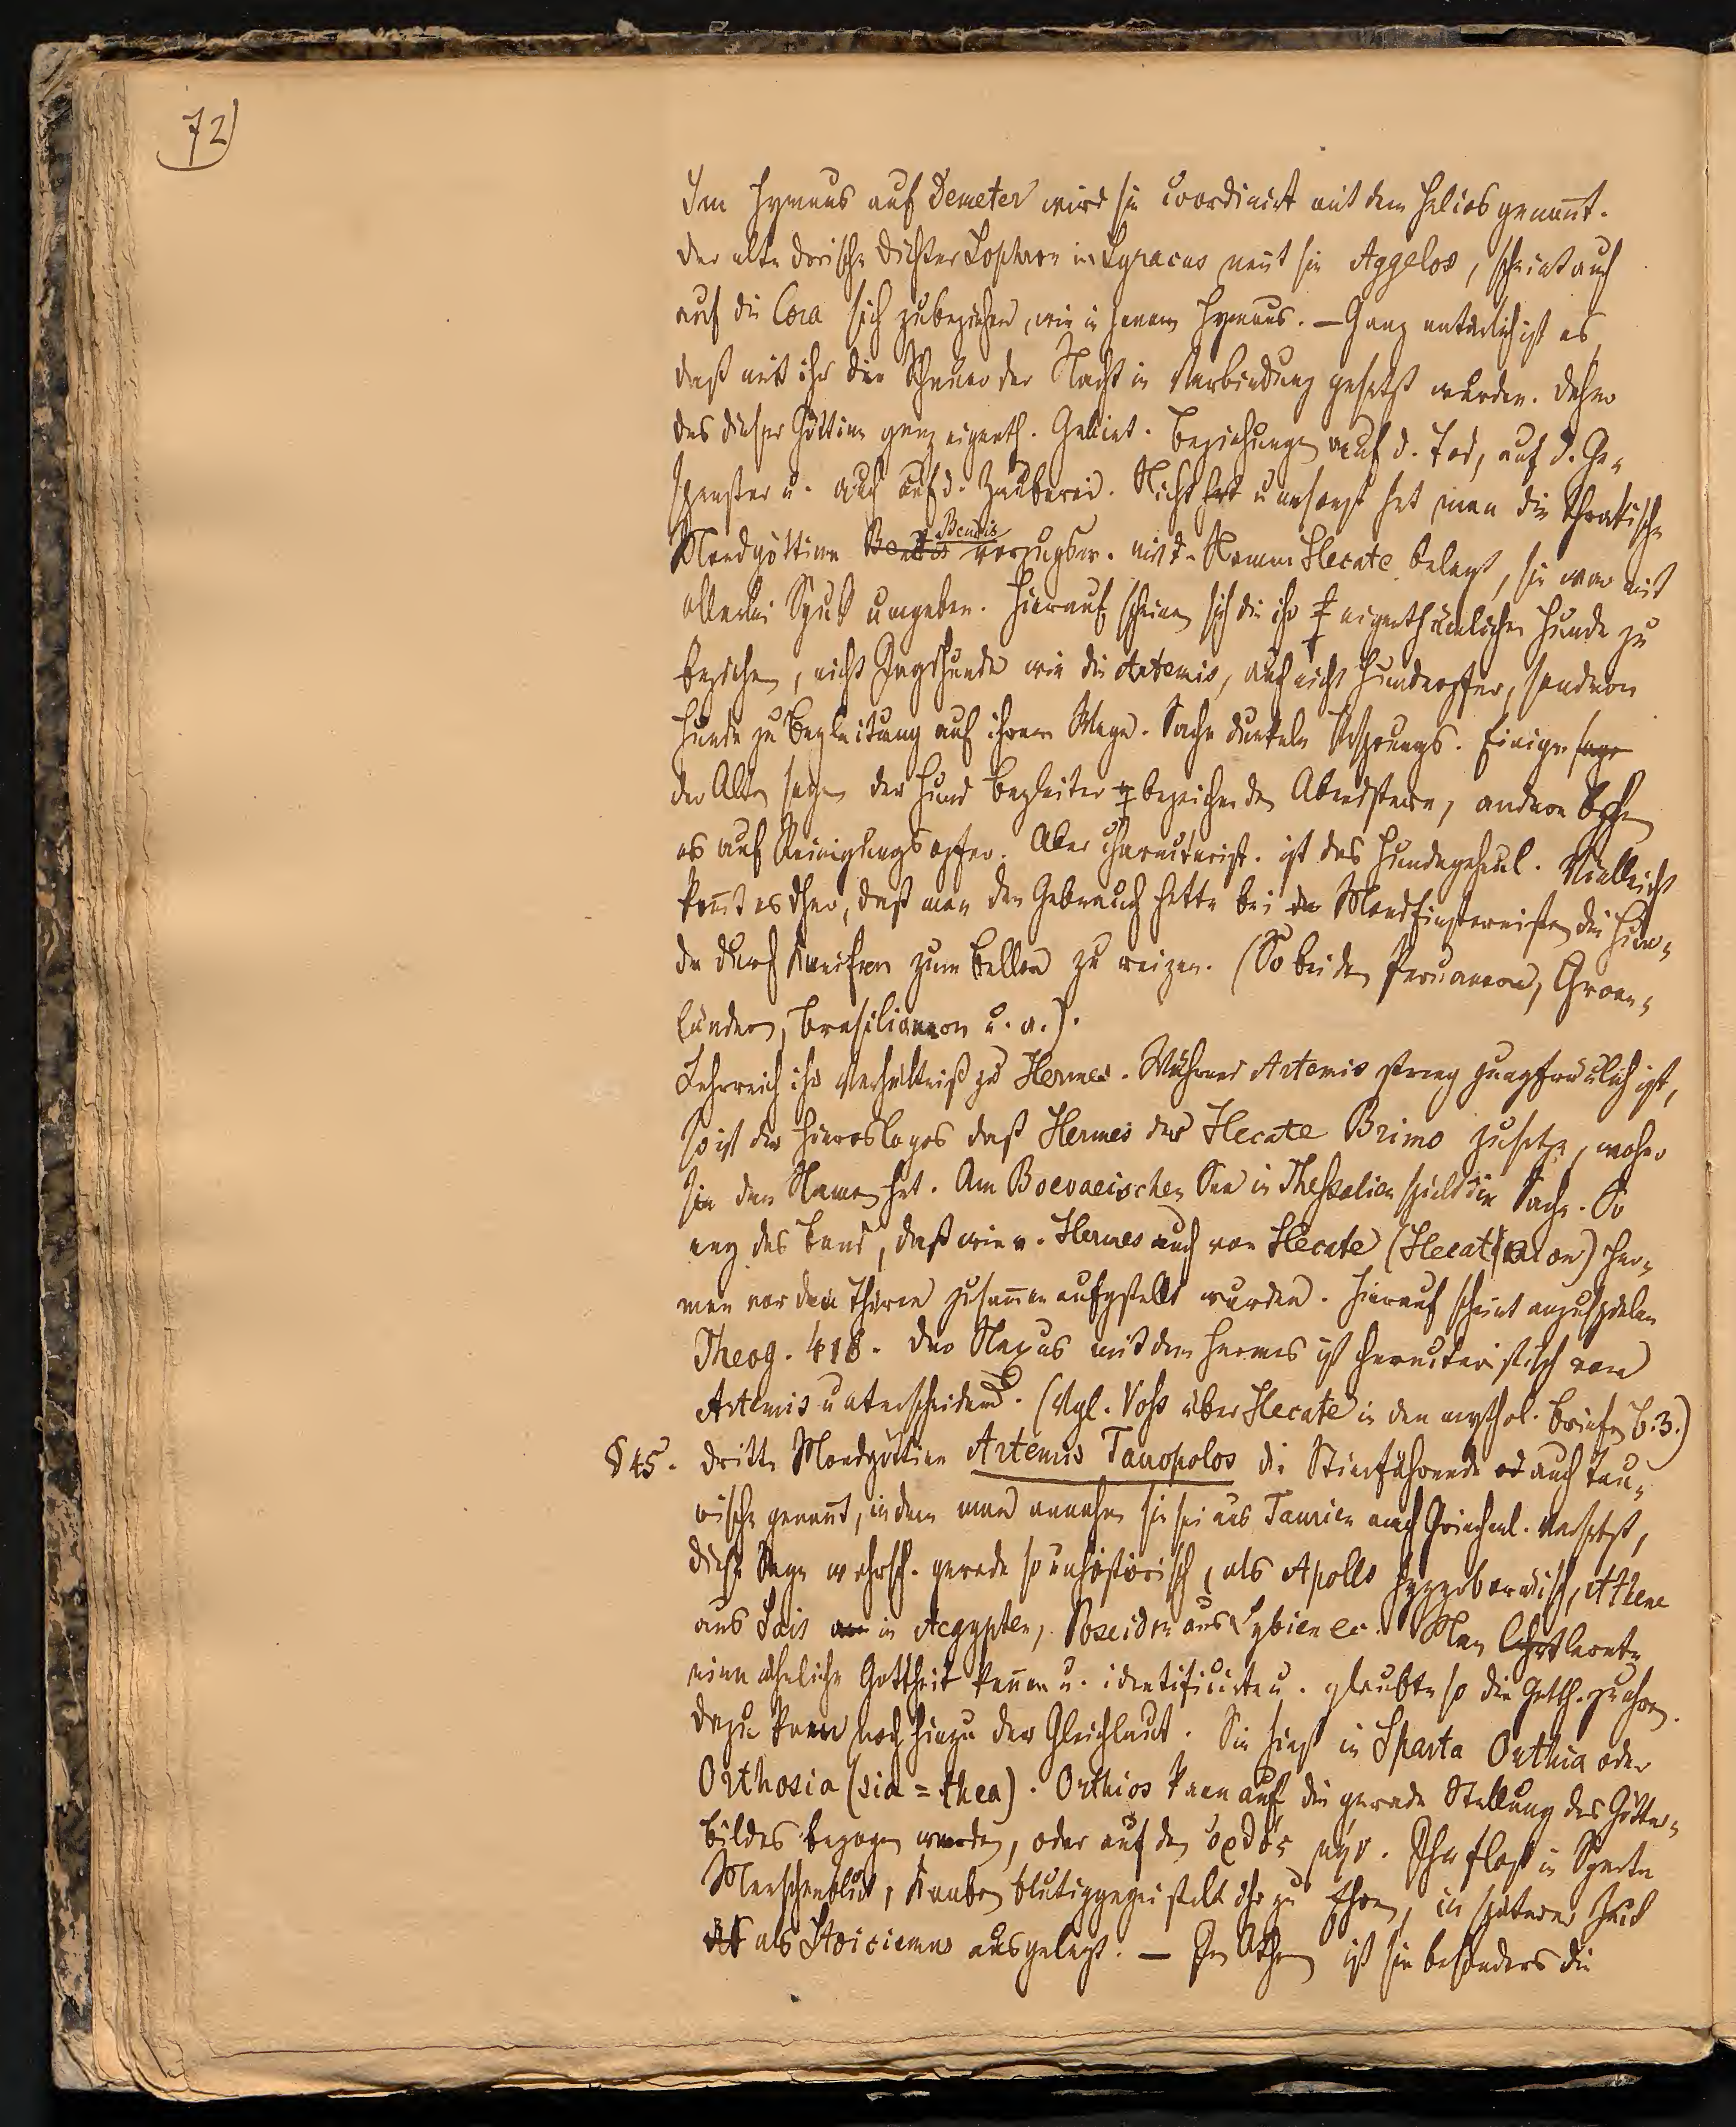 72)
Im Hymnus auf Demeter wird sie coordinirt mit dem Helios genannt.
Der alte dorische Dichter Sophron in Syracus nennt sie Aggelos, scheint auch
auf die Cora sich zubeziehen, wie in jenem Hymnus. – Ganz natürlich ist es,
daß mit ihr die Schauer der Nacht in Verbindung gesetzt wurden. Daher
das dieser Göttinn ganz eigenth. Gebiet. Beziehungen auf d. Tod, auf d. Ge-
spenster u. auch auf d. Zauberei. Nicht umsonst hat man die thrakische
Mondgöttinn Bendis vorzugsw. mit d. Namen Hecate belegt, sie war mit
allerlei Spuk umgeben. Hierauf scheinen sich die ihr eigenthümlichen Hunde zu
beziehen, nicht Jagdhunde wie die Artemis, auch nicht Hundeopfer, sondern
Hunde zu Begleitung auf ihrem Wege. Sache dunkeln Ursprungs. Einige sage
der Alten sagen der Hund Begleiter bezeichne den Abendstern, andere
es auf Reinigungsopfer. Aber characterist. ist das Hundegeheul. Vielleicht
kommt es dher, daß man den Gebrauch hatte bei den Mondfinsternissen die Hun-
de durch Kneifen zum Bellen zu reizen. (So bei den Peruanern, Groen-
ländern, Brasilianern u. a.).
Lehrreich ihr Verhältniß zu Hermes. Während Artemis streng jungfräulich ist,
so ist der Hieros Logos daß Hermes der Hecate Brimo zusetze, woher
sie den Namen hat. Am Boevaeischen See in Thessalien spielt die Sache. So
eng das Band, daß wie v. Hermes auch von Hecate (Hecataeon) Her-
men vor den Thüren zusammen aufgestellt wurden. Hierauf scheint anzuspielen
Theog. 418. Der Nexus mit dem Hermes ist characteristisch von
Artemis unterscheidend. (Vgl. Voss über Hecate in den mythol. Briefen B. 3.)
§ 45. Dritte Mondgöttinn Artemis Tauropolos die Stierführende od auch Tau-
rische genannt, indem man annahm sie sei aus Taurien nach Griechenl. versetzt,
diese Sage wahrsch. gerade so unhistorisch, als Apollo hyperboraeisch, Athene
aus Sais in Aegypten, Poseidon aus Lybien ec. Man lernte
eine ähnliche Gottheit kennen u. identificirte u. glaubte so die Gotth. zu ehren.
Dazu kam noch hinzu der Gleichlaut. Sie hieß in Sparta Orthia oder
Orthosia (sia = thea). Orthios kann auf die gerade Stellung des Götter-
bildes bezogen werden, oder auf den ὀρθός μην. Ihr floß in Sparta
Menschenblut, Knaben blutiggegeisselt ihr zu Ehren, in späterer Zeit
als Stoicismus ausgelegt. – In Athen ist sie besonders die